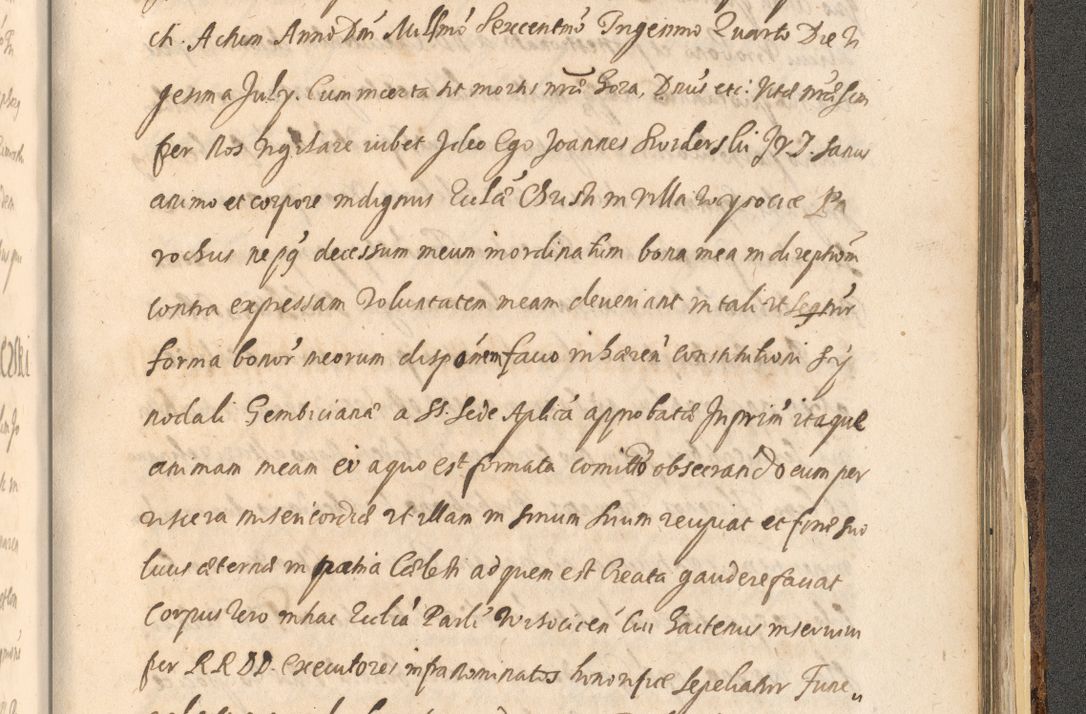 ch. Actum Anno Dni Millmo Sexcentmo Trigesimo Quarto Die Vi
gesima July. Cum incerta sit mortis nrae hora, Dnus etc: Vitae nrae sem
per nos vigilare iubet Ideo Ego Joannes Swiderski JVD. sanus
animo et corpore indignus Eclae Christi in Villa Wysocice Pa
rochus ne post decessum meum inordinatim bona mea in direptiom
contra expressam voluntatem meam deveniant in tali ut legitur
forma bonor meorum disponem facio inhaeren constitutioni Sy
nodali Gembicianae a SS. Sede Aplica approbatae Inprim itaque
animam meam ei a quo est formata comitto obsecrando eum per
viscera misericordiae ut illam in sinum suum recipiat et fine suo
luius aeterna in patria Caelesti ad quem est Creata gaudere faciat
Corpus vero in hac Ecclia Parli Wisocicen cui hactenus inservivi
per RRDD. executores infranominatos honorifice sepeliatur Fune